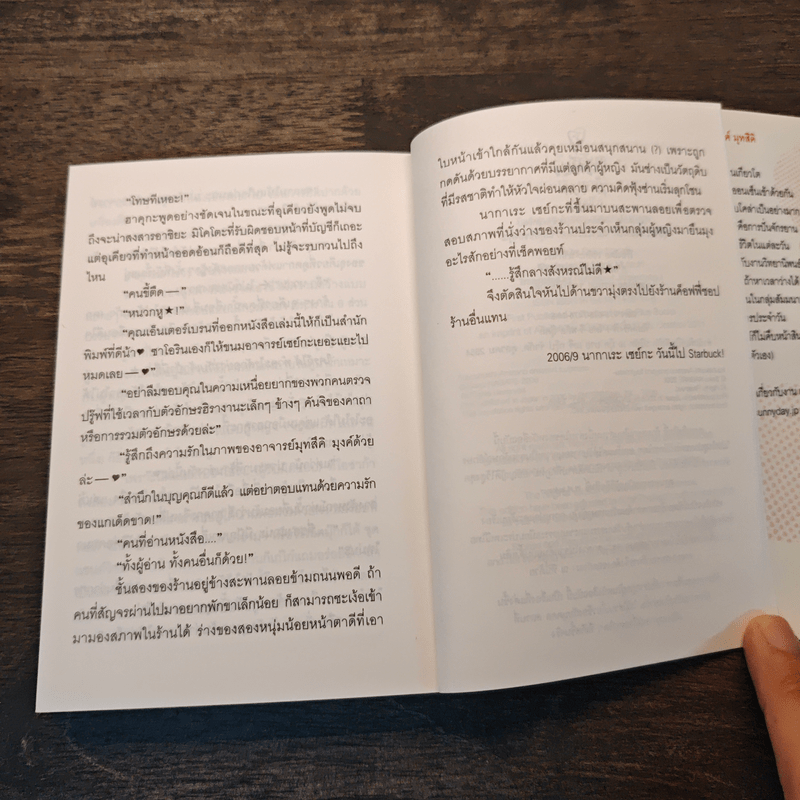 “โทษทีเหอะ!”
ฮาคุกะพูดอย่างชัดเจนในขณะที่อุเคียวยังพูดไม่จบ
ถึงจะน่าสงสารอาชิยะ มิโคโตะที่รับผิดชอบหน้าที่บัญชีก็เถอะ
แต่อุเคียวที่ทำหน้าออดอ้อนก็ถือดีที่สุด ไม่รู้จะรบกวนไปถึง
ไหน
“คนขี้ตืด —”
“หนวกหู★!”
“คุณเอ็นเตอร์เบรนที่ออกหนังสือเล่มนี้ให้ก็เป็นสำนัก
พิมพ์ที่ดีน้า♥ ซาโอรินเองก็ให้ขนมอาจารย์เซย์กะเยอะแยะไป
หมดเลย — ♥”
“อย่าลืมขอบคุณในความเหนื่อยยากของพวกคนตรวจ
ปรู๊ฟที่ใช้เวลากับตัวอักษรฮิรางานะเล็กๆ ข้างๆ คันจิของคาถา
หรือการรวมตัวอักษรด้วยล่ะ”
“รู้สึกถึงความรักในภาพของอาจารย์มุทสึคิ มุงค์ด้วย
ล่ะ — ♥”
“สำนึกในบุญคุณก็ดีแล้ว แต่อย่าตอบแทนด้วยความรัก
ของแกเด็ดขาด!”
“คนที่อ่านหนังสือ....”
“ทั้งผู้อ่าน ทั้งคนอื่นก็ด้วย!”
ชั้นสองของร้านอยู่ข้างสะพานลอยข้ามถนนพอดี ถ้า
คนที่สัญจรผ่านไปมาอยากพักขาเล็กน้อย ก็สามารถชะเง้อเข้า
มามองสภาพในร้านได้ ร่างของสองหนุ่มน้อยหน้าตาดีที่เอา
ใบหน้าเข้าใกล้กันแล้วคุยเหมือนสนุกสนาน (?) เพราะถูก
กดดันด้วยบรรยากาศที่มีแต่ลูกค้าผู้หญิง มันช่างเป็นวัตถุดิบ
ที่มีรสชาติทำให้หัวใจผ่อนคลาย ความคิดฟุ้งซ่านเริ่มลุกโชน
นากาเระ เซย์กะที่ขึ้นมาบนสะพานลอยเพื่อตรวจ
สอบสภาพที่นั่งว่างของร้านประจำเห็นกลุ่มผู้หญิงมายืนมุง
อะไรสักอย่างที่เช็คพอยท์
“......รู้สึกลางสังหรณ์ไม่ดี★”
จึงตัดสินใจหันไปด้านขวามุ่งตรงไปยังร้านค็อฟฟี่ชอป
ร้านอื่นแทน
2006/9 นากาเระ เซย์กะ วันนี้ไป Starbuck!
ค์ มุทสึคิ
นเกียวโต
ออนเซ็นเข้าด้วยกัน
คือการปั่นจักรยาน
ถ้าหาเวลาว่างได้
รประจำวัน
ตัวเอง)
unnyday.jp